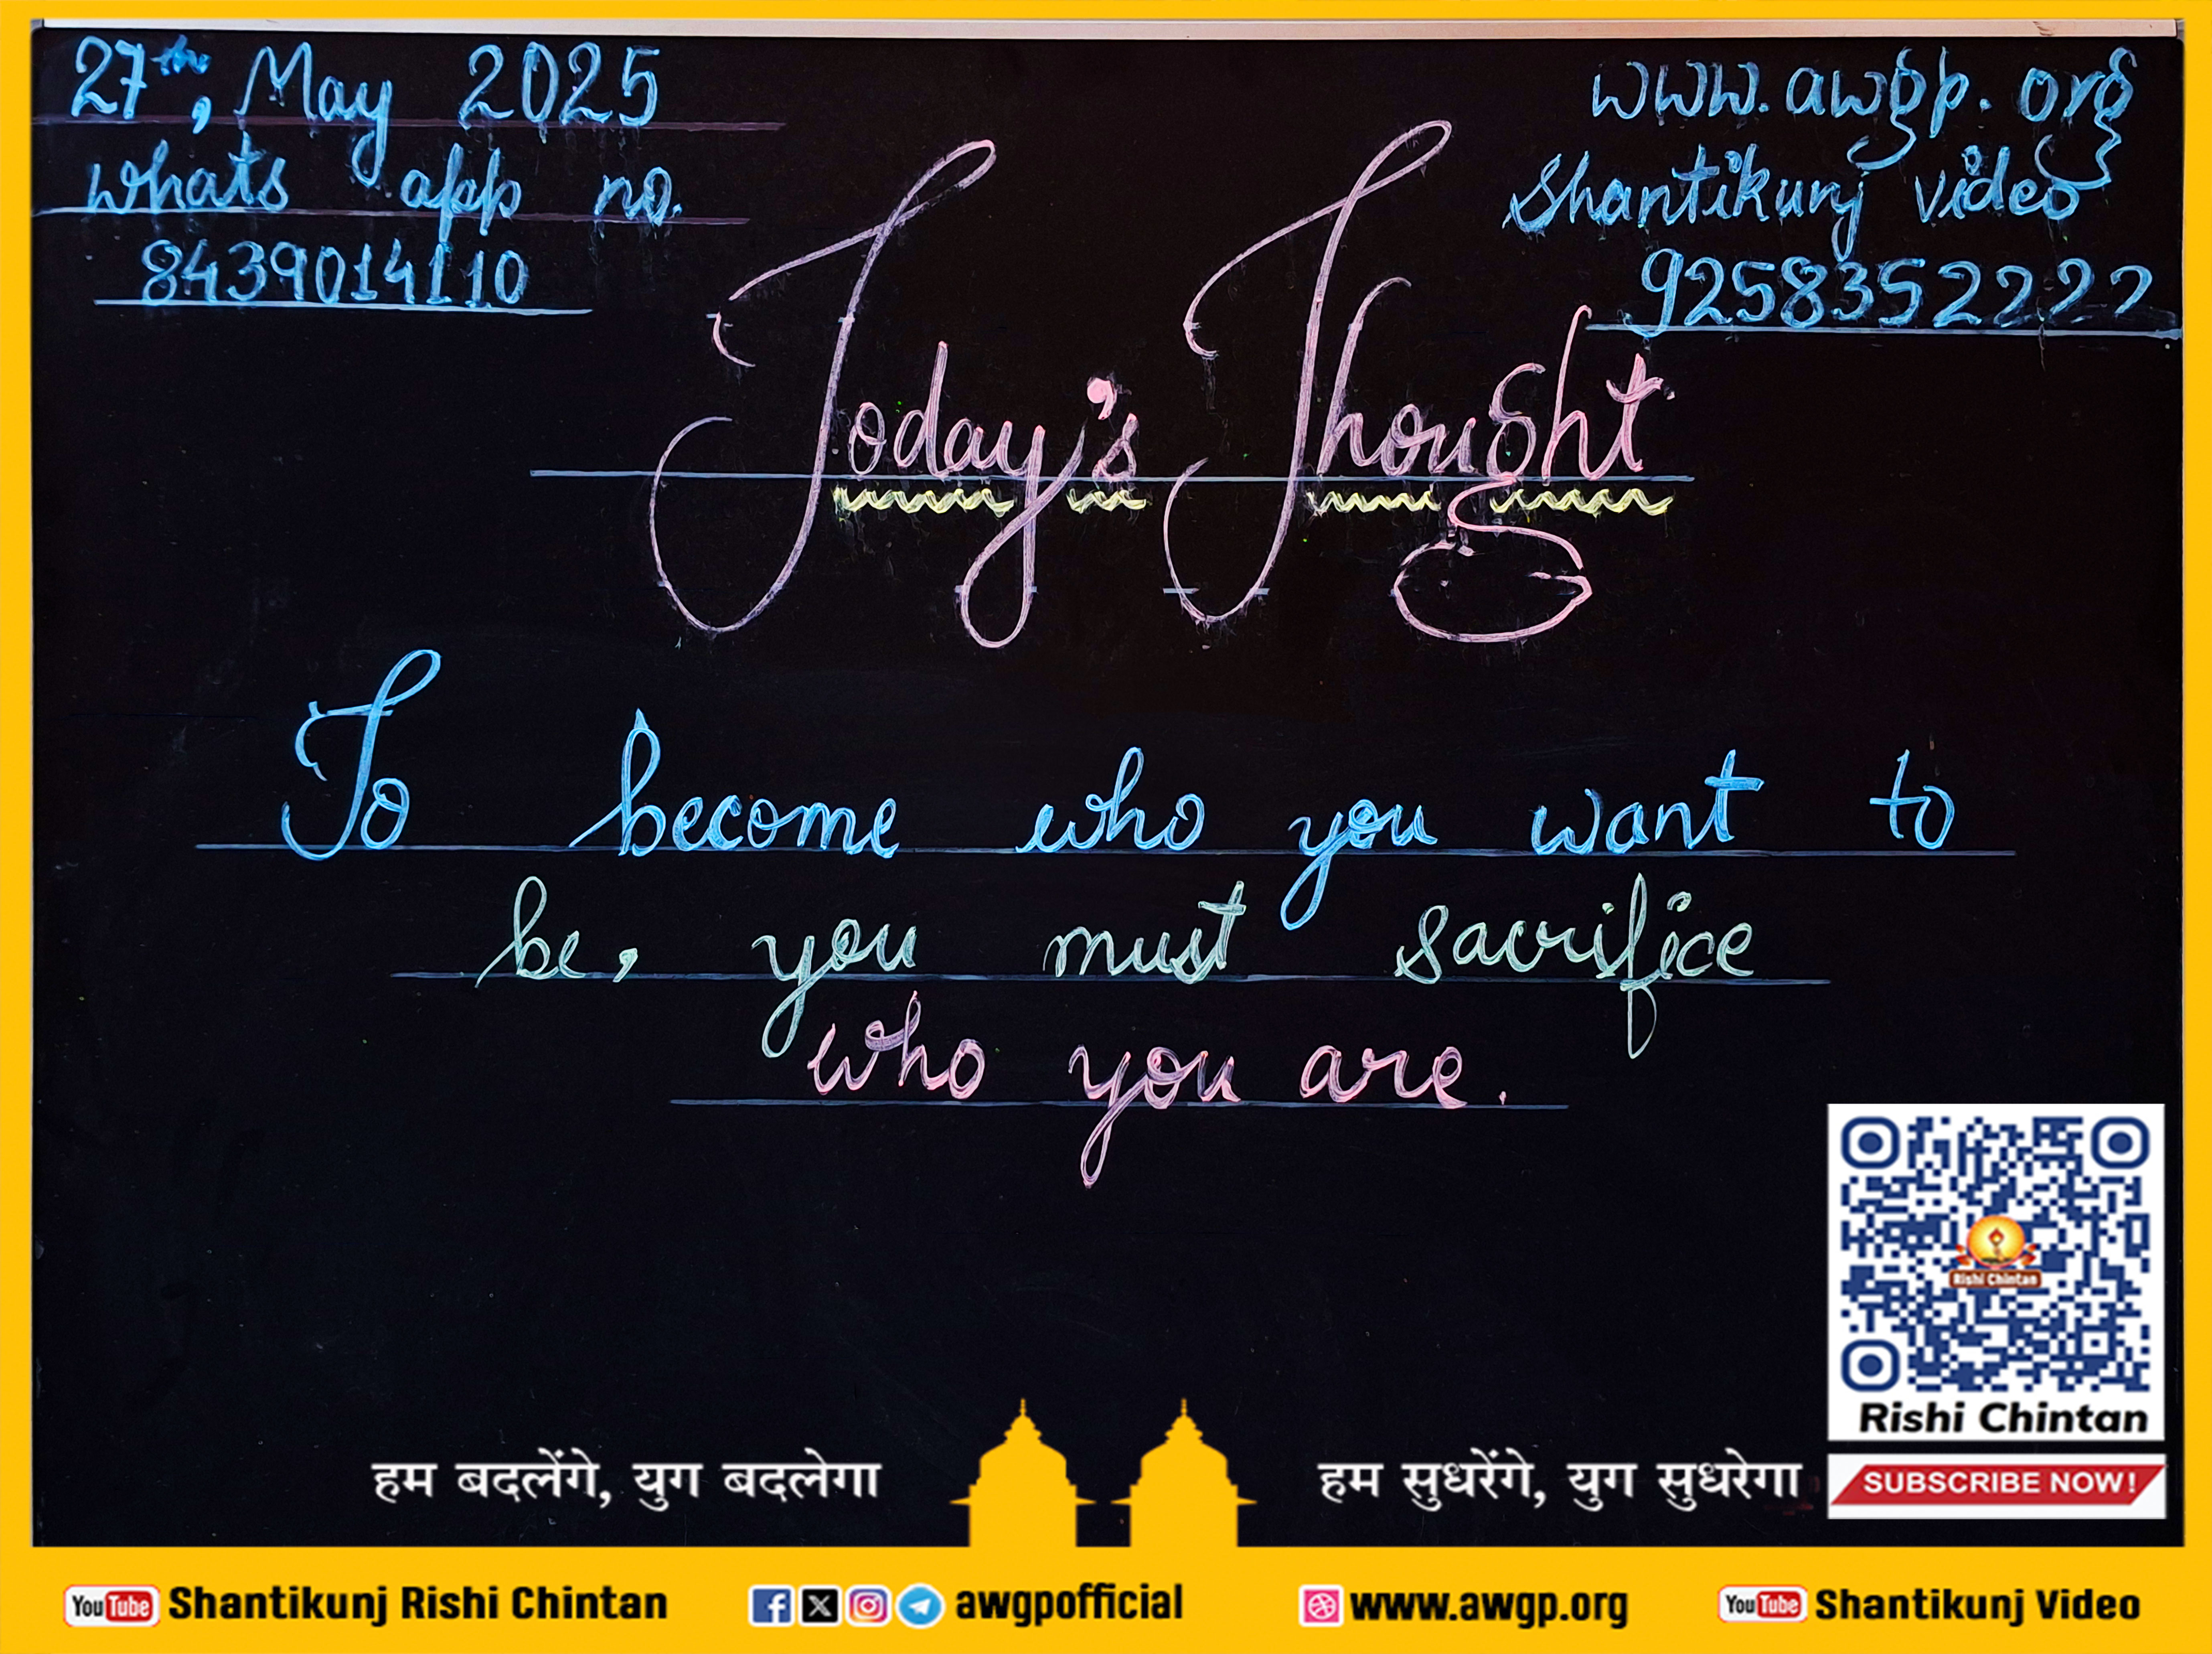 27th, May 2025
whats app no.
8439014110
www.awgp.org
Shantikunj video
9258352222
Today's Thought
To become who you want to
be, you must sacrifice
who you are.
Rishi Chintan
Rishi Chintan
SUBSCRIBE NOW!
हम बदलेंगे, युग बदलेगा
हम सुधरेंगे, युग सुधरेगा
YouTube Shantikunj Rishi Chintan
awgpofficial
www.awgp.org
YouTube Shantikunj Video